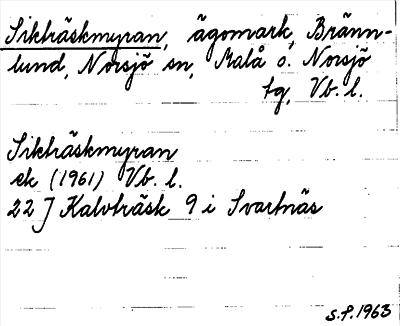 Sikträskmyran, ägomark, Bränn-
lund, Norsjö sn, Malå o. Norsjö
tg, Vb. l.
Sikträskmyran
ek (1961) Vb. l.
22 J Kalvträsk 9 i Svartnäs
S.f. 1963